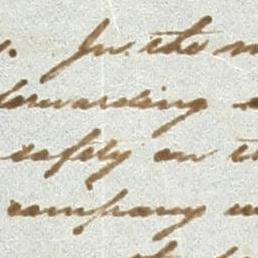 In the
forwarding
safely on
company